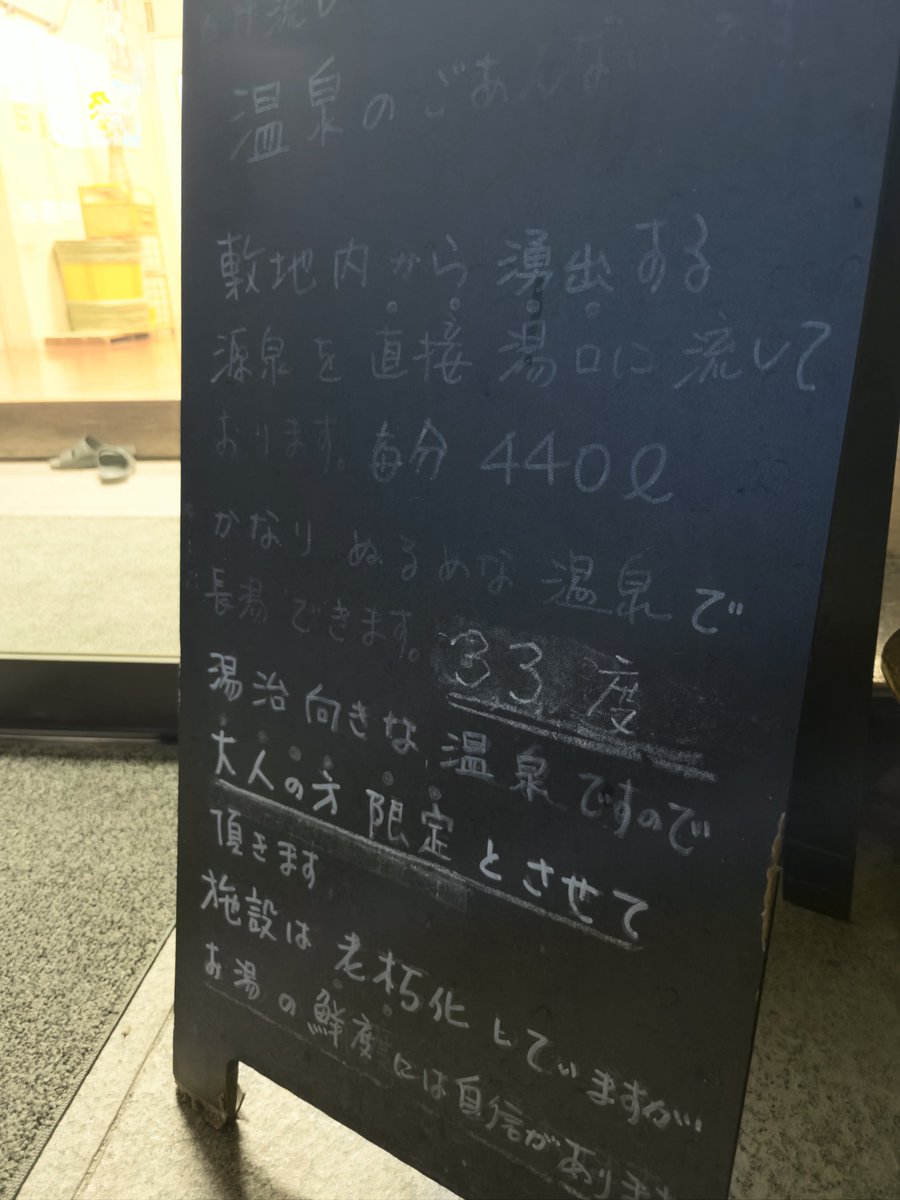 温泉のごあん
敷地内から湧出する
源泉を直接湯口に流して
おります。毎分440ℓ
かなりぬるめな温泉で
長湯できます。33度
湯治向きな温泉ですので
大人の方限定とさせて
頂きます
施設は老朽化していますが
お湯の鮮度には自信があります